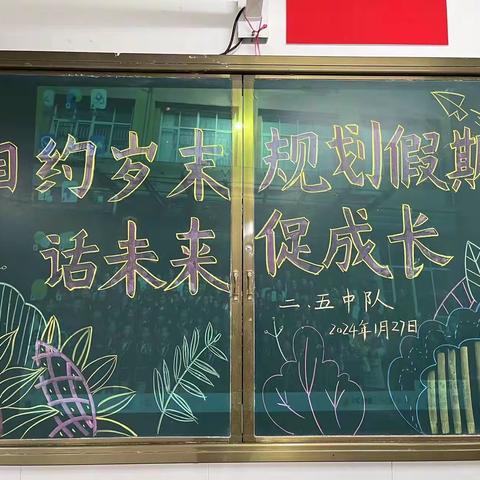 相约岁末 规划假期
话未来 促成长
二.五中队
2024年1月27日